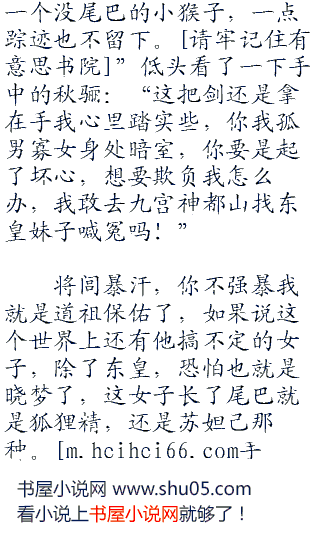 一个没尾巴的小猴子，一点
踪迹也不留下。[请牢记住有
意思书院]”低头看了一下手
中的秋骊：“这把剑还是拿
在手我心里踏实些，你我孤
男寡女身处暗室，你要是起
了坏心，想要欺负我怎么
办，我敢去九宫神都山找东
皇妹子喊冤吗！”
将闾暴汗，你不强暴我
就是道祖保佑了，如果说这
个世界上还有他搞不定的女
子，除了东皇，恐怕也就是
晓梦了，这女子长了尾巴就
是狐狸精，还是苏妲己那
种。[m.hcihci66.com手
书屋小说网 www.shu05.com
看小说上书屋小说网就够了！